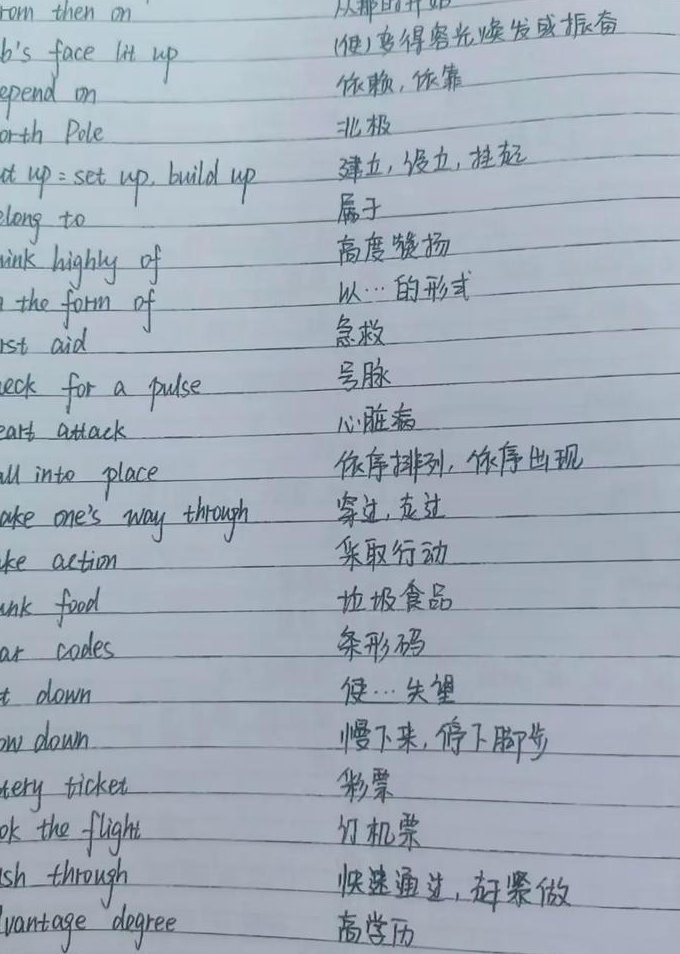 rom then on 从那时开始
b's face lit up (使)变得容光焕发或振奋
epend on 依赖,依靠
orth Pole 北极
ut up = set up, build up 建立,设立,挂起
elong to 属于
ink highly of 高度赞扬
n the form of 以…的形式
rst aid 急救
eck for a pulse 号脉
eart attack 心脏病
all into place 依序排列,依序出现
ake one's way through 穿过,走过
ke action 采取行动
unk food 垃圾食品
ar codes 条形码
t down 使…失望
ow down 慢下来,停下脚步
tery ticket 彩票
ok the flight 订机票
sh through 快速通过,赶紧做
vantage degree 高学历